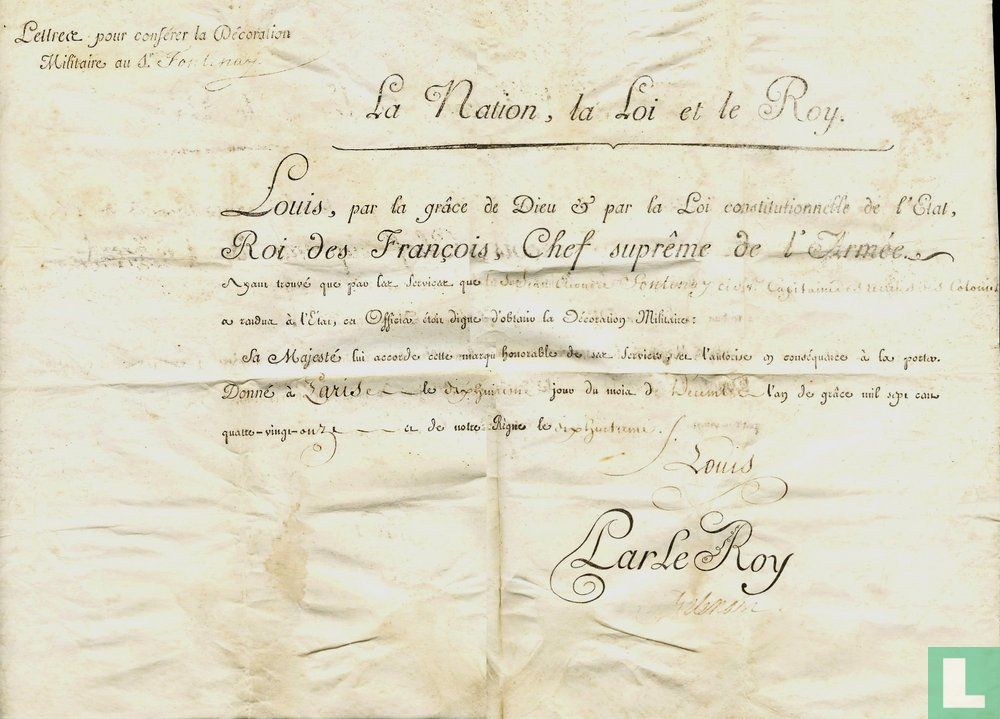 Lettres pour conférer la Décoration
Militaire au Sr. Fontenay
La Nation, la Loi et le Roy.
Louis, par la grâce de Dieu & par la Loi constitutionnelle de l'Etat,
Roi des François, Chef suprême de l'Armée.
Ayant trouvé que par les services que le Sr Jean Fontenay Capitaine Colonies
a rendus à l'Etat, cet Officier étoit digne d'obtenir la Décoration Militaire:
Sa Majesté lui accorde cette marque honorable de ses services; et l'autorise en conséquence à la porter.
Donné à Paris le dixhuitieme jour du mois de Décembre l'an de grâce mil sept cent
quatre-vingt-onze et de notre Règne le dixhuitieme.
Louis
Par Le Roy
L